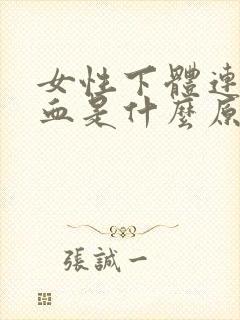 女性下體連
血是什麼原
張誠一